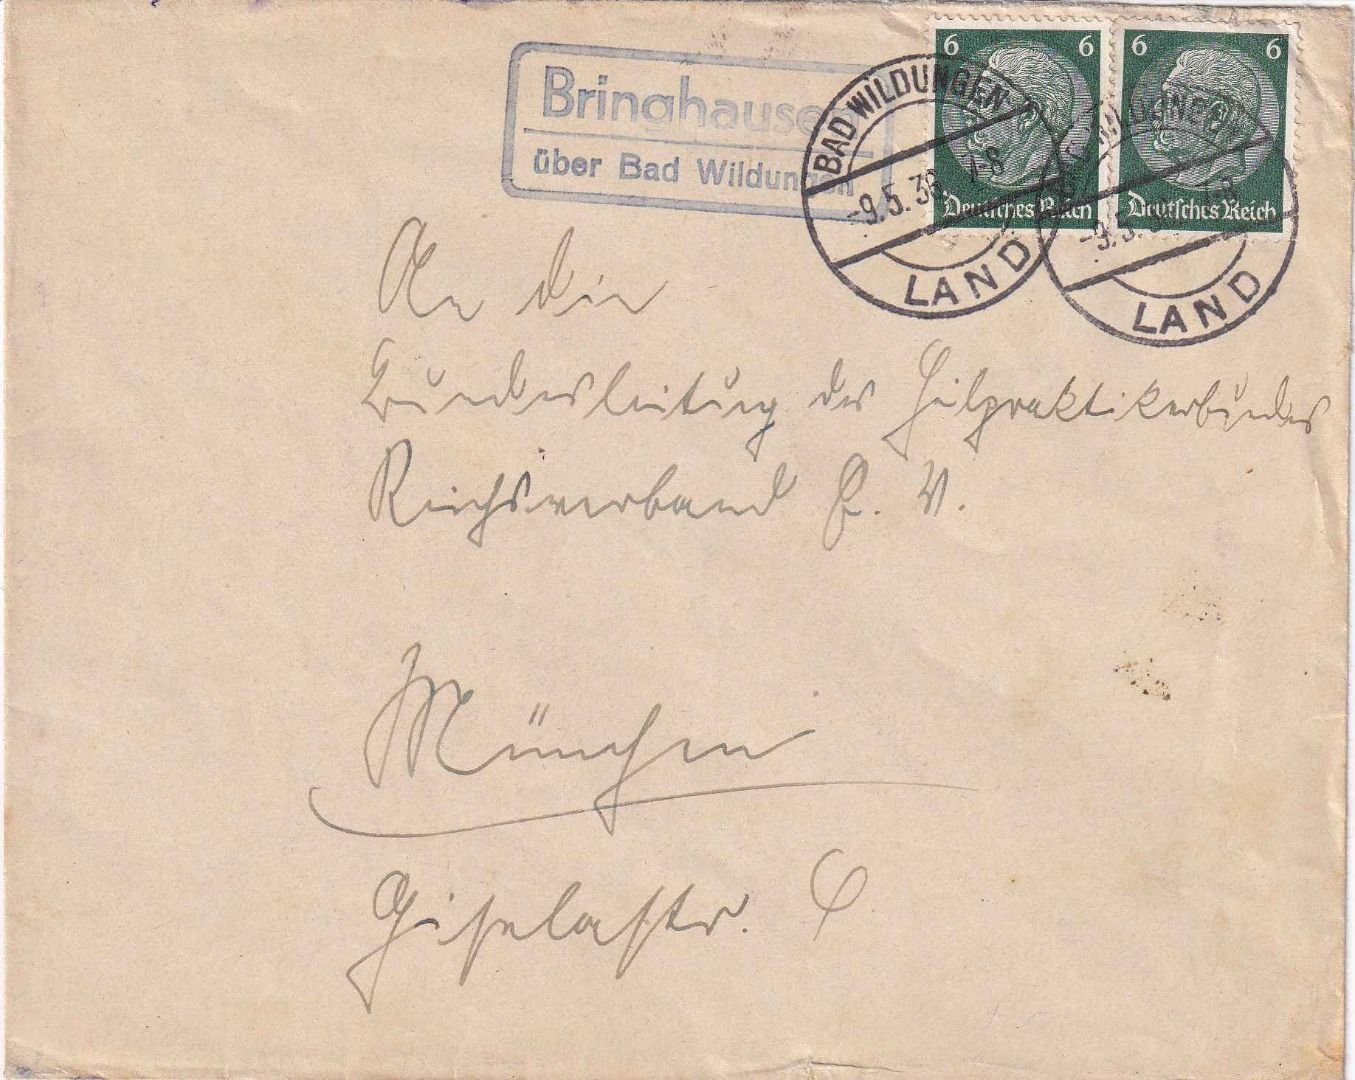 Bringhausen
über Bad Wildungen
6 6
6 6
Deutsches Reich
Deutsches Reich
BAD WILDUNGEN
-9.5.38 7-8
LAND
BAD WILDUNGEN
-9.5.3 7-8
LAND
An die
Bundesleitung des Heilpraktikerbundes
Reichsverband E. V.
München
Giselastr.